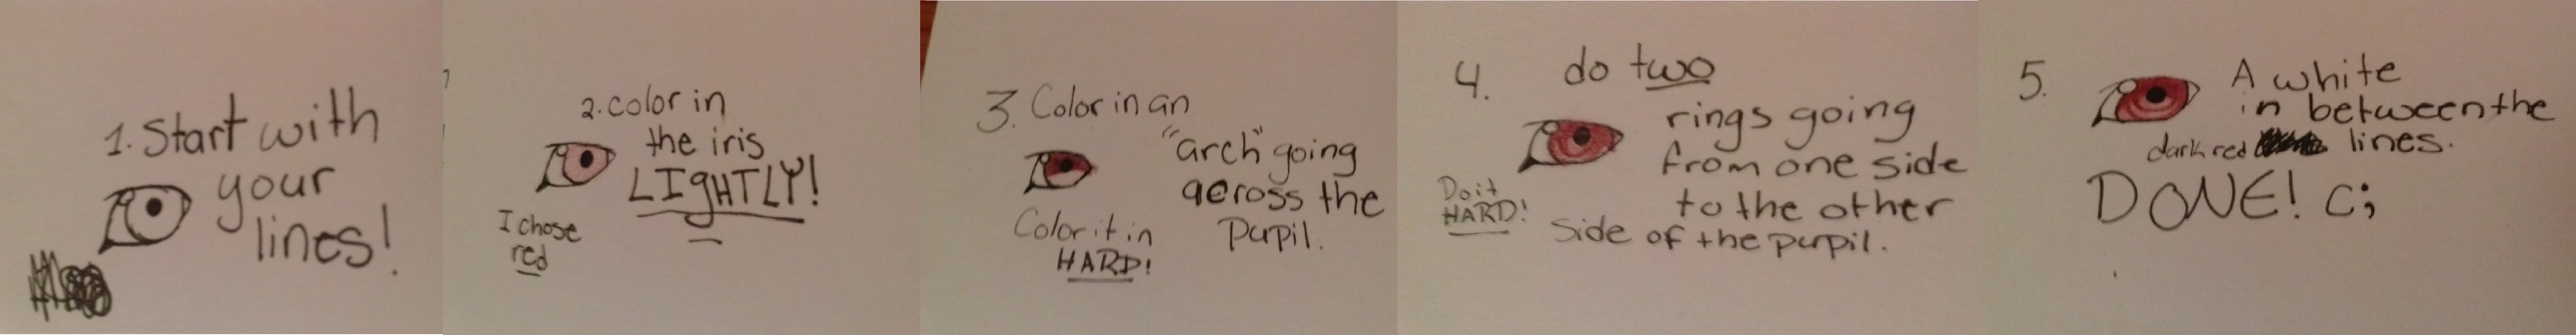 1. Start with
your
lines!
2. color in
the iris
LIGHTLY!
I chose
red
3. Color in an
"arch" going
across the
Pupil.
Color it in
HARD!
4. do two
rings going
from one side
to the other
side of the pupil.
Do it
HARD!
5. A white
in between the
dark red lines.
DONE! c;